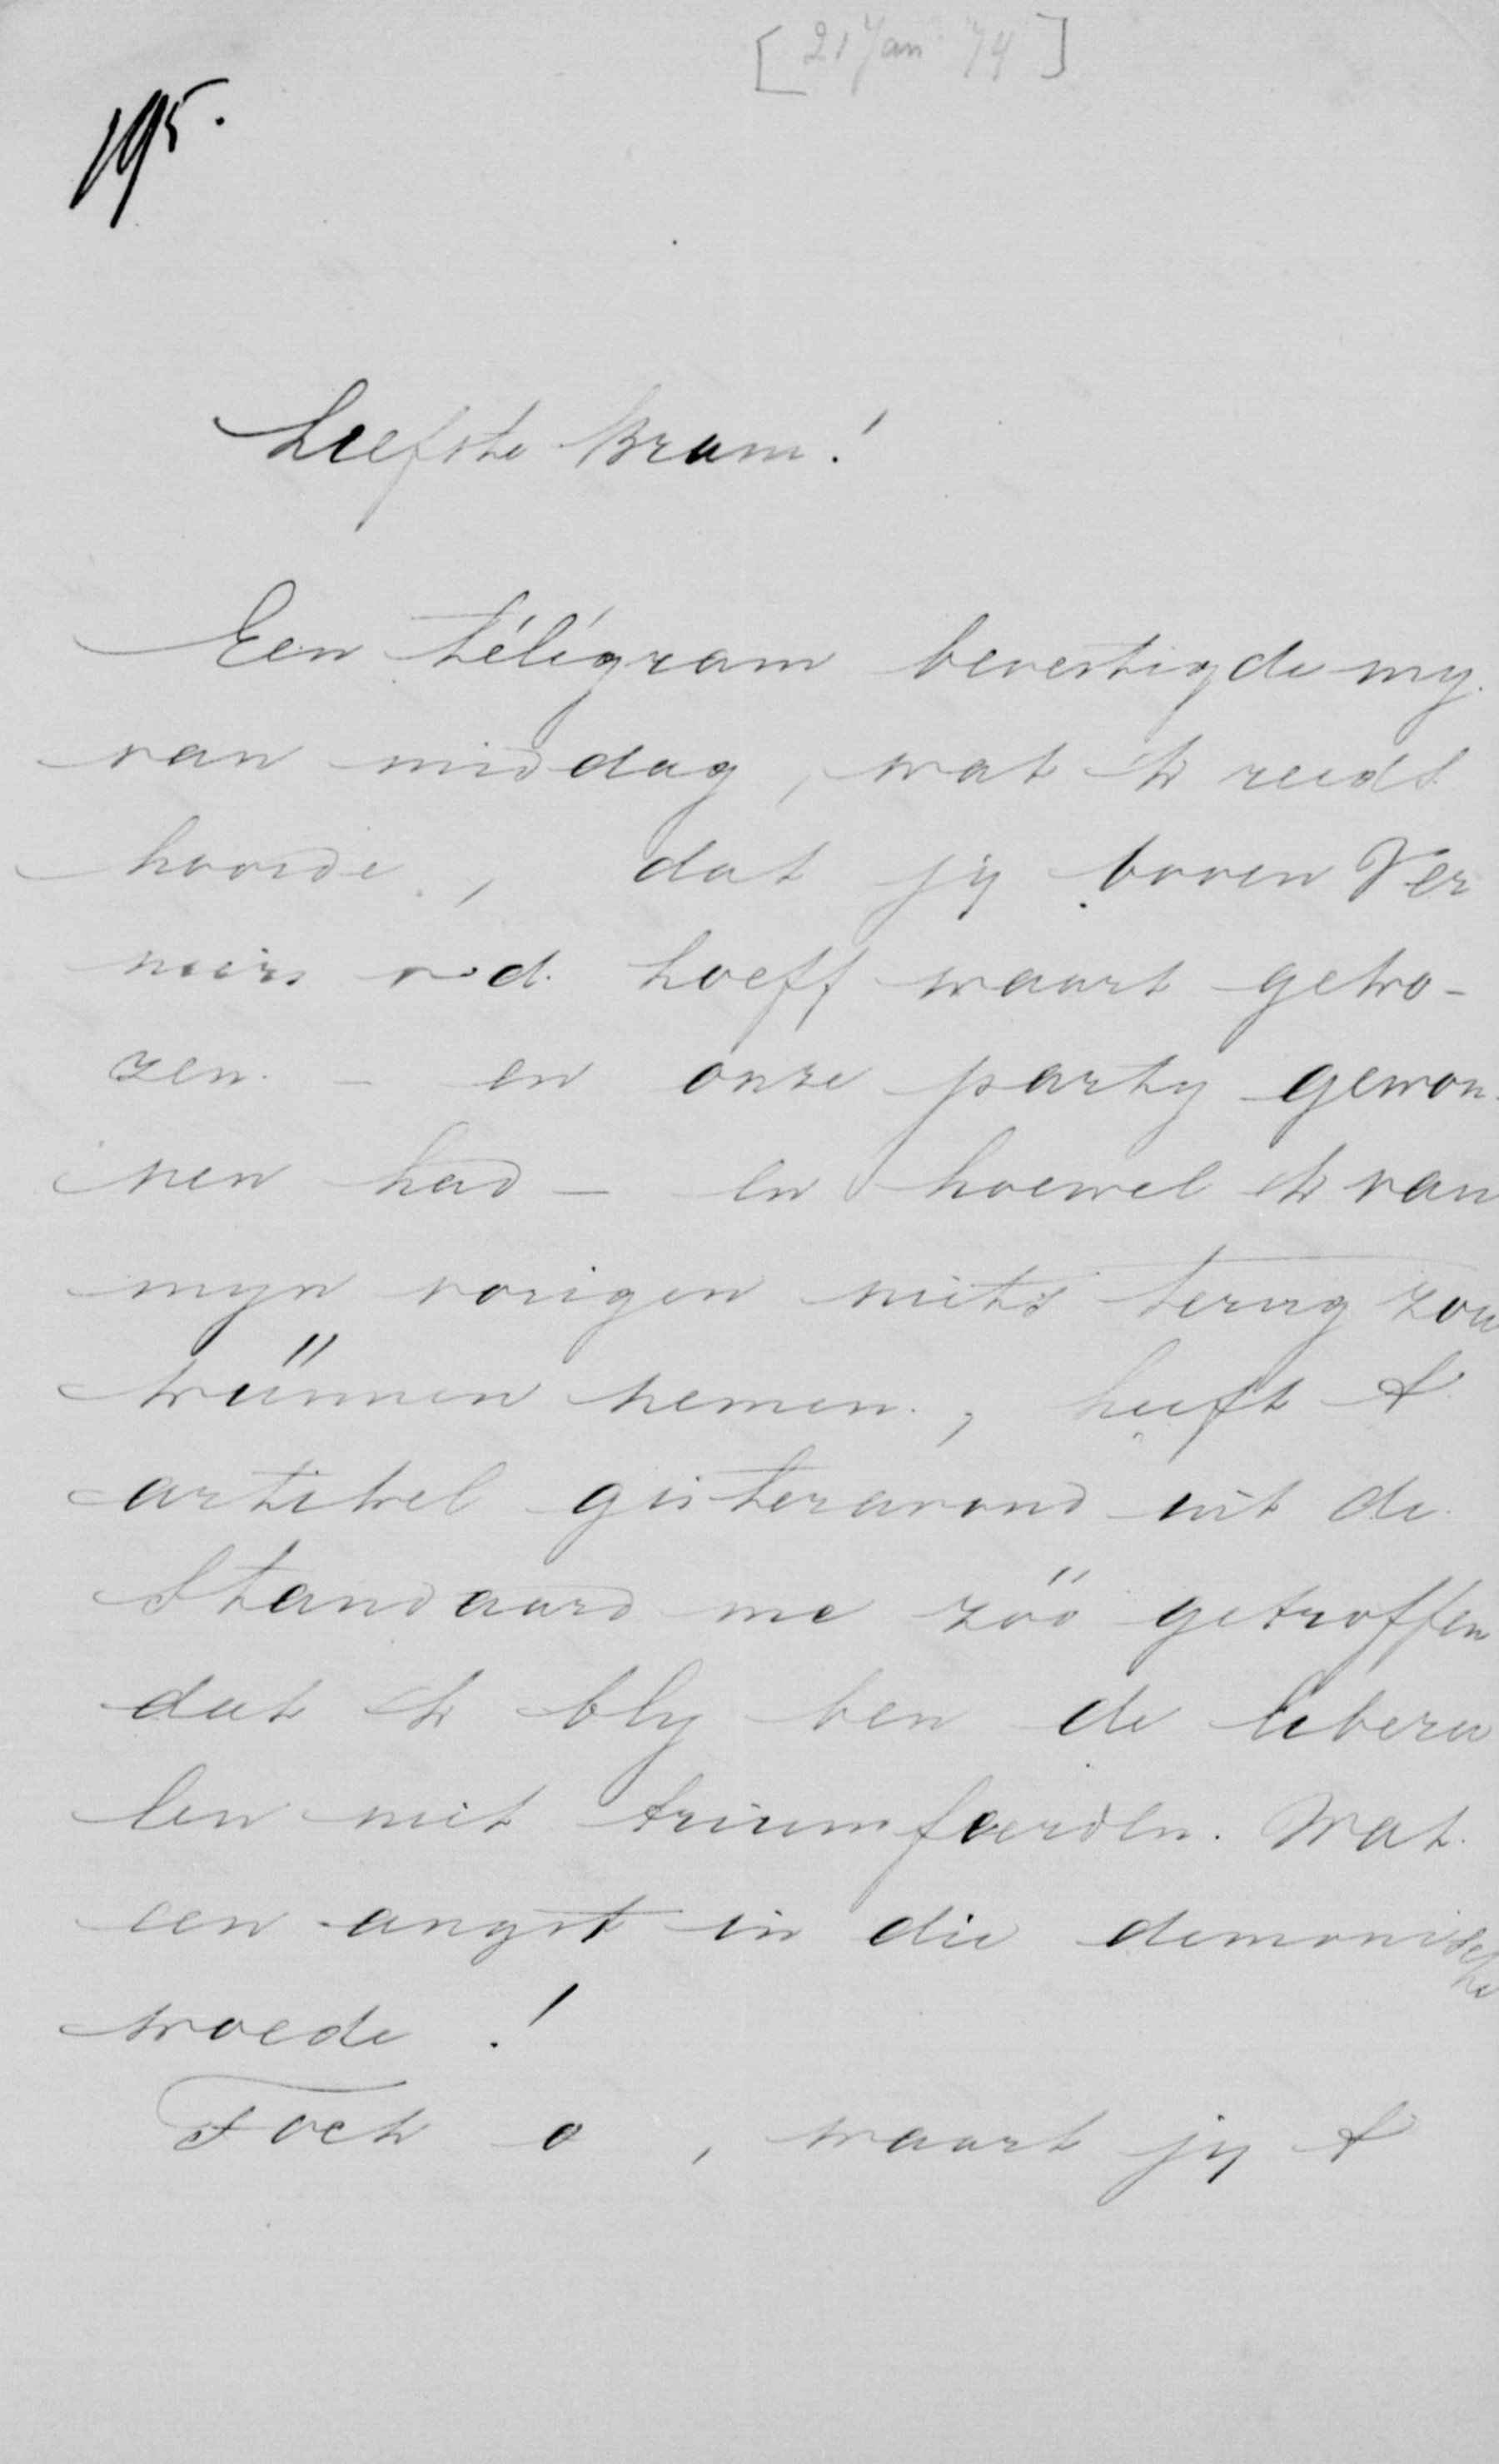 [21 Jan '74]
195.
Liefste Bram!
Een télégram bevestigde my
van middag, wat ik reeds
hoorde, dat jy boven Ver
v.d. Loeff waart geko-
zen. - en onze party gewon-
nen had - en hoewel ik van
myn vorigen niets terug zou
künnen nemen, heeft 't
artikel gisteravond uit de
Standaard me zóó getroffen
dat ik bly ben de libera
len niet triumfeerden. Wat
een angst in die demonische
woede!
Toch o, waart jy 't